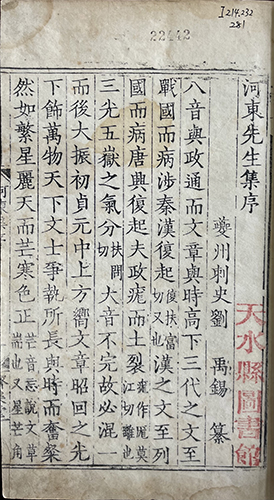 I214.232
281
22442
河東先生集序
夔州刺史劉 禹錫 纂
八音與政通而文章與時高下三代之文至
戰國而病涉秦漢復起復扶富切又也漢之文至列
國而病唐興復起夫政痝而土裂痝作厖莫江切雜也
三光五嶽之氣分扶問切大音不完故必混一
而後大振初貞元中上方嚮文章昭回之光
下飾萬物天下文士爭執所長與時而奮粲
然如繁星麗天而芒寒色正芒音忘說文草耑也又星芒角
天水縣圖書館